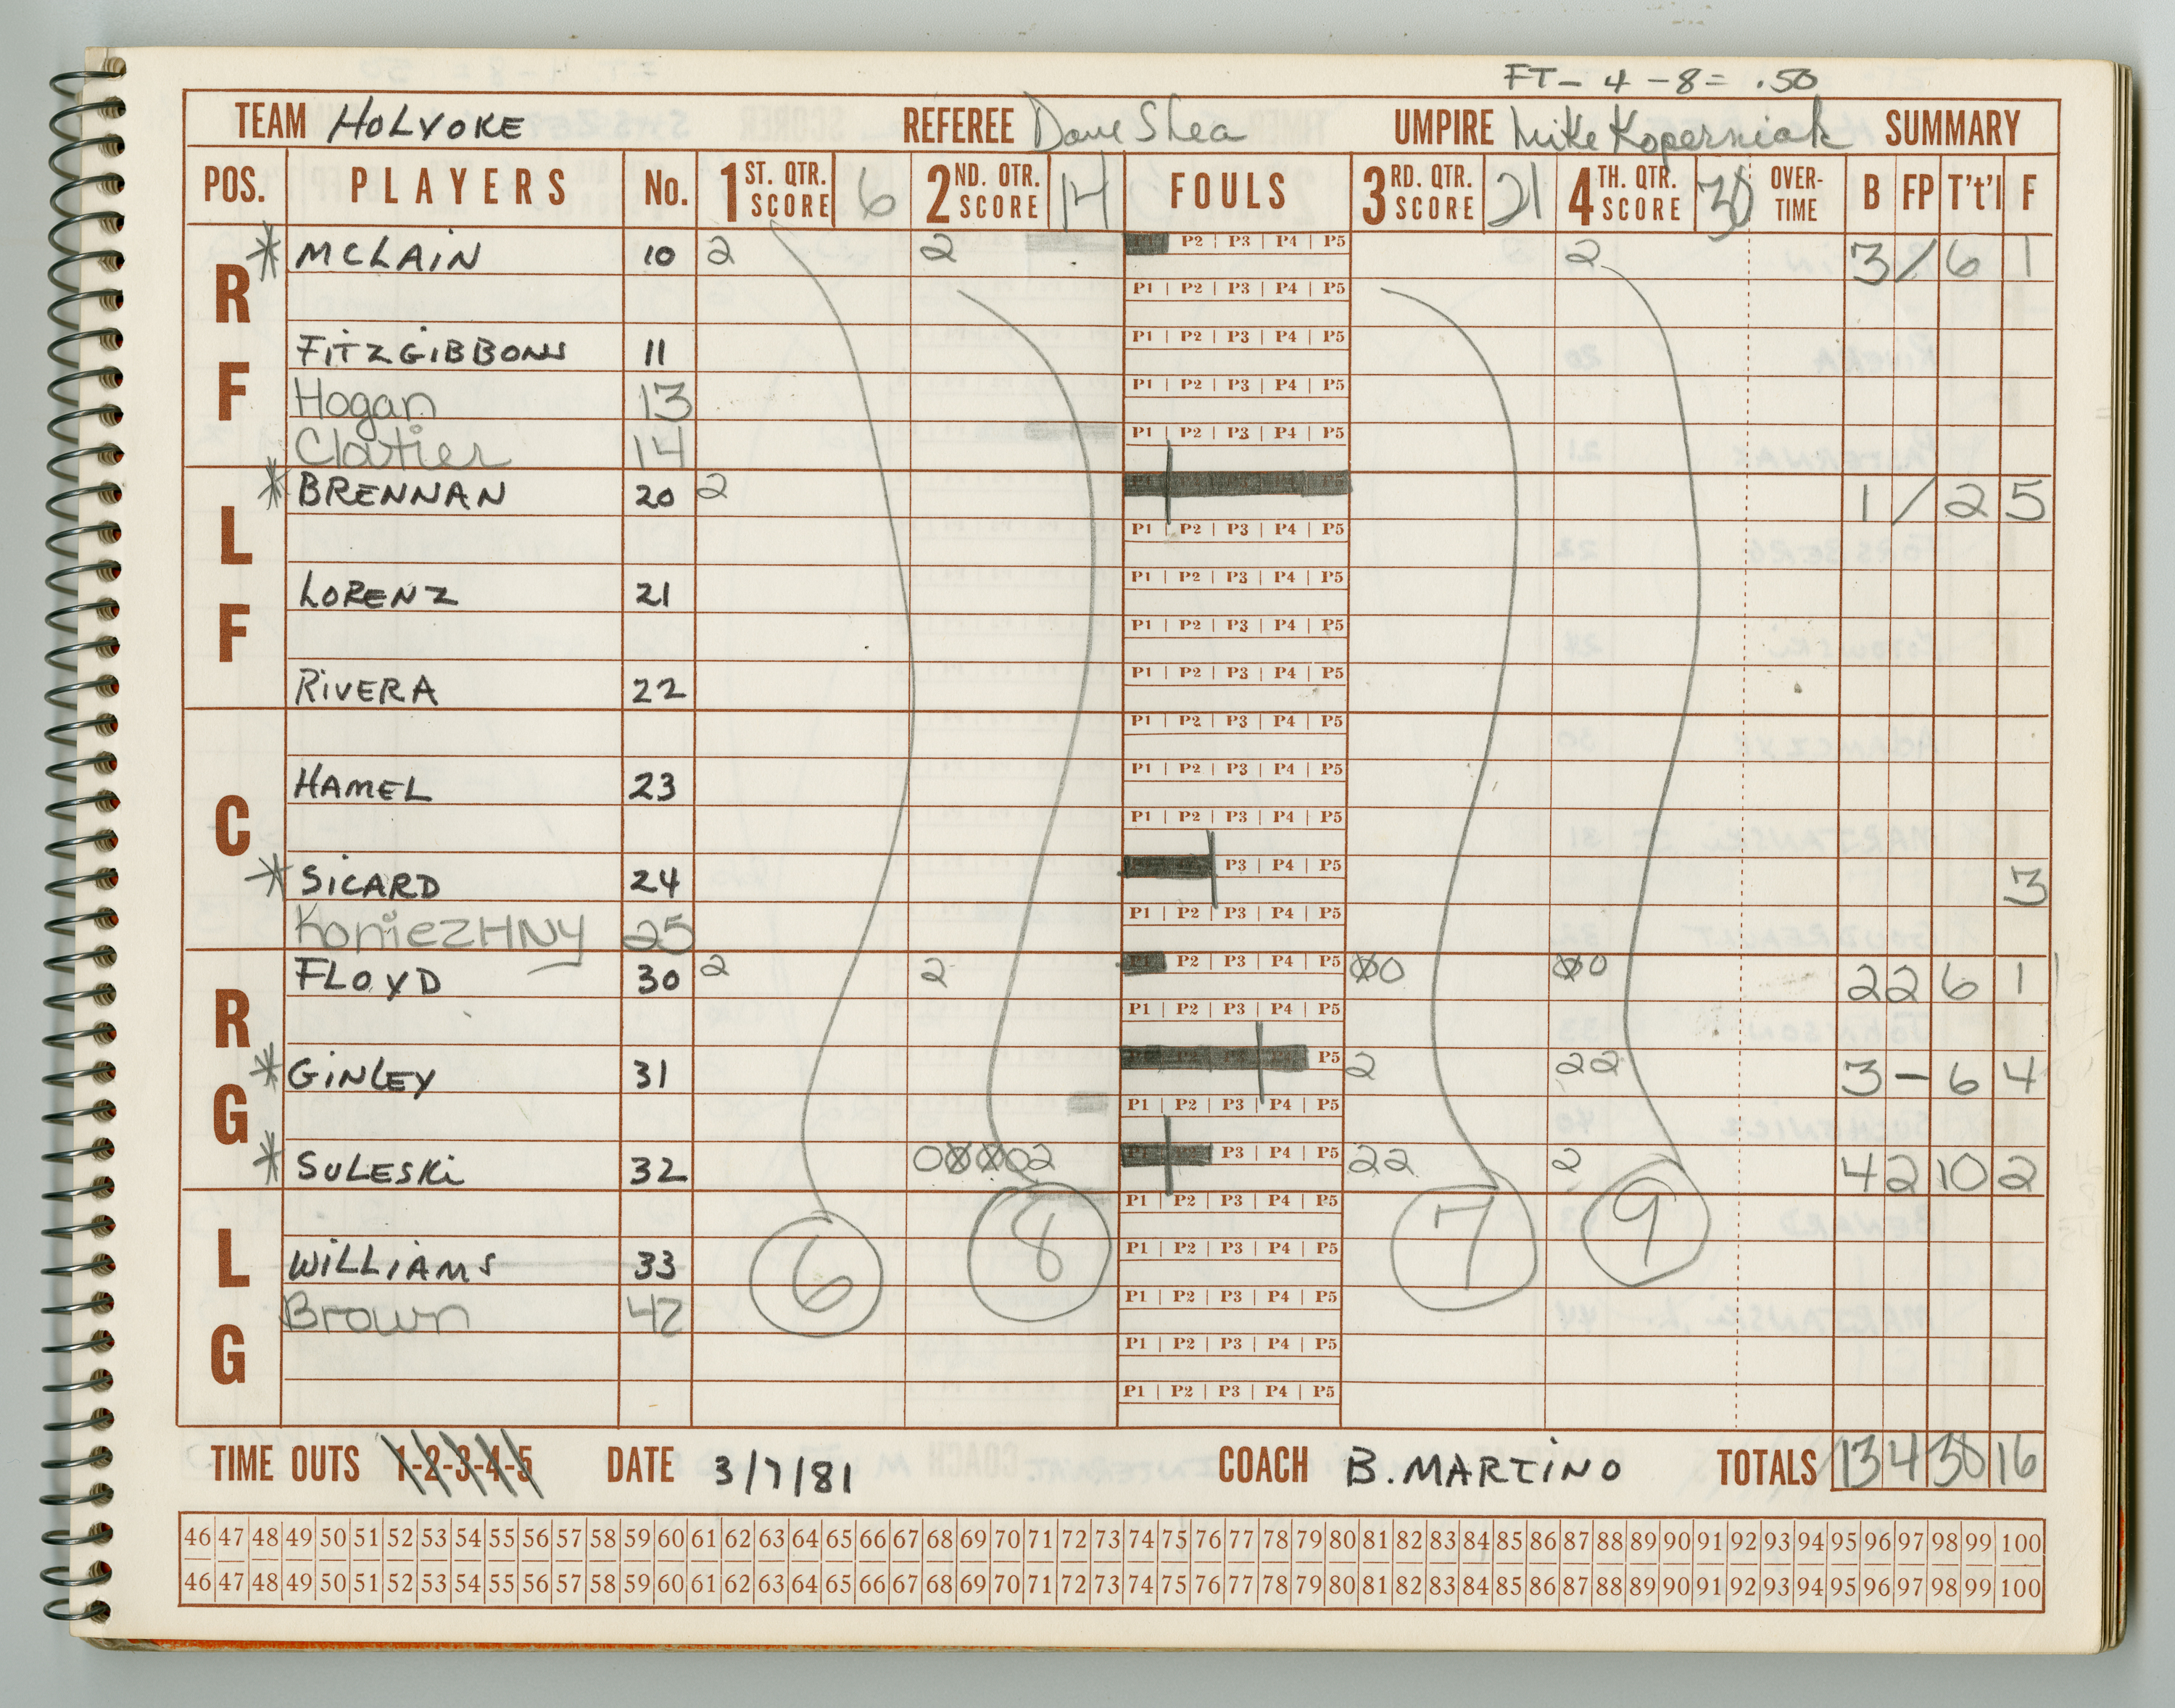 FT - 4 - 8 = .50
TEAM HOLYOKE REFEREE Dave Shea UMPIRE Mike Koperniak SUMMARY
POS. PLAYERS No. 1 ST. QTR. SCORE 6 2 ND. QTR. SCORE 14 FOULS 3 RD. QTR. SCORE 21 4 TH. QTR. SCORE 30 OVER-TIME B FP T't'l F
RF
* MCLAIN 10 2 2 P2 P3 P4 P5 2 3 / 6 1
P1 P2 P3 P4 P5
FITZGIBBONS 11 P1 P2 P3 P4 P5
Hogan 13 P1 P2 P3 P4 P5
Clotier 14 P1 P2 P3 P4 P5
LF
* BRENNAN 20 2 1 / 2 5
P1 P2 P3 P4 P5
LORENZ 21 P1 P2 P3 P4 P5
P1 P2 P3 P4 P5
RIVERA 22 P1 P2 P3 P4 P5
C
P1 P2 P3 P4 P5
HAMEL 23 P1 P2 P3 P4 P5
P1 P2 P3 P4 P5
* SICARD 24 P3 P4 P5 3
KoniezHNY 25 P1 P2 P3 P4 P5
RG
FLOYD 30 2 2 P2 P3 P4 P5 00 00 2 2 6 1
P1 P2 P3 P4 P5
* GINLEY 31 P5 2 22 3 - 6 4
P1 P2 P3 P4 P5
* SULESKI 32 00002 P3 P4 P5 22 2 4 2 10 2
LG
P1 P2 P3 P4 P5
WILLIAMS 33 P1 P2 P3 P4 P5
Brown 42 P1 P2 P3 P4 P5
6 8 7 9
P1 P2 P3 P4 P5
P1 P2 P3 P4 P5
TIME OUTS 1-2-3-4-5 DATE 3/7/81 COACH B. MARTINO TOTALS 13 4 30 16
46 47 48 49 50 51 52 53 54 55 56 57 58 59 60 61 62 63 64 65 66 67 68 69 70 71 72 73 74 75 76 77 78 79 80 81 82 83 84 85 86 87 88 89 90 91 92 93 94 95 96 97 98 99 100
46 47 48 49 50 51 52 53 54 55 56 57 58 59 60 61 62 63 64 65 66 67 68 69 70 71 72 73 74 75 76 77 78 79 80 81 82 83 84 85 86 87 88 89 90 91 92 93 94 95 96 97 98 99 100